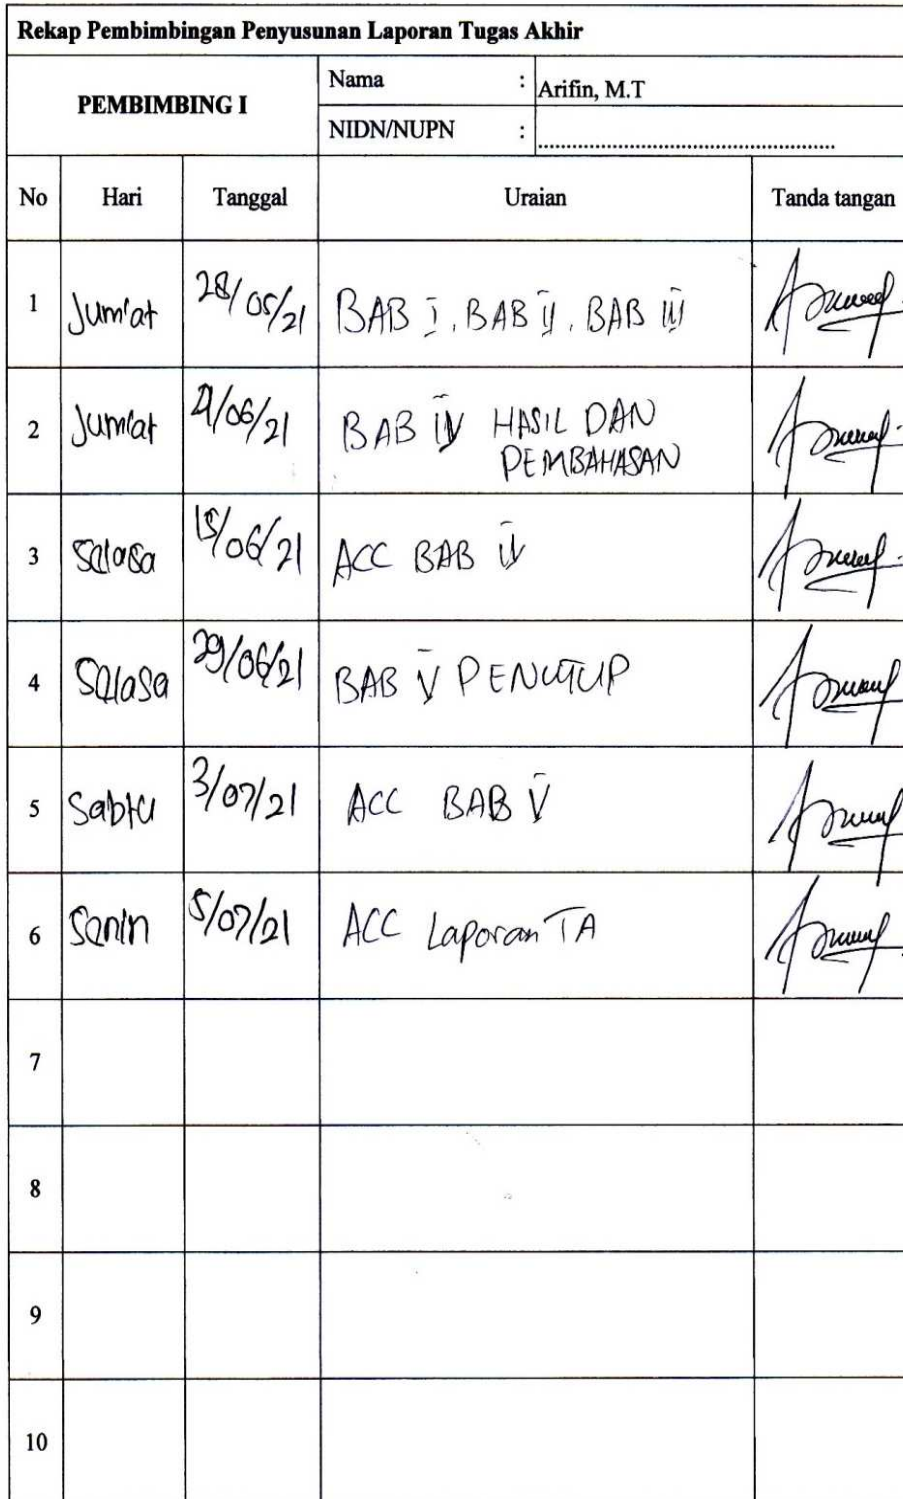 Rekap Pembimbingan Penyusunan Laporan Tugas Akhir
PEMBIMBING I
Nama : Arifin, M.T
NIDN/NUPN : ....................................................
No Hari Tanggal Uraian Tanda tangan
1 Jum'at 28/05/21 BAB I, BAB II, BAB III
2 Jum'at /06/21 BAB IV HASIL DAN
PEMBAHASAN
3 Selasa 15/06/21 ACC BAB IV
4 Selasa 29/06/21 BAB V PENUTUP
5 Sabtu 3/07/21 ACC BAB V
6 Senin 5/07/21 ACC Laporan TA
7
8
9
10